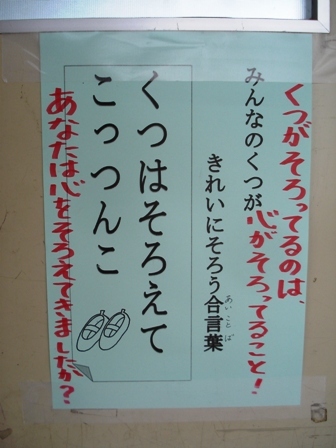 くつがそろってるのは、
心がそろってること！
みんなのくつが
きれいにそろう合言葉
あいことば
くつはそろえて
こっつんこ
あなたは心をそろえてきましたか？